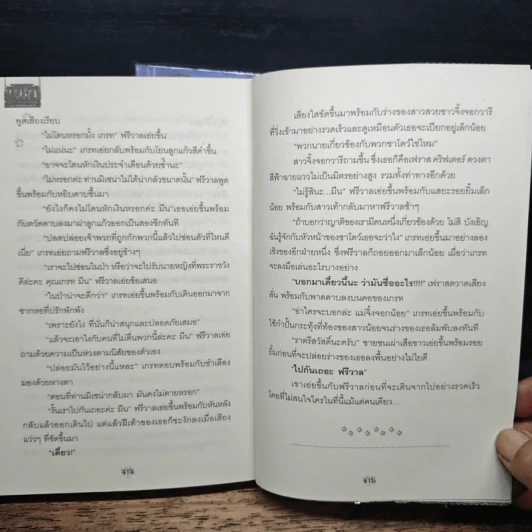 พูดเสียงเรียบ
"ไม่โดนหรอกมั้ง เกรท" ฟรีวาลเอ่ยขึ้น
"ไม่แน่นะ" เกรทเอ่ยกลับพร้อมกับโยนลูกแก้วสีดำขึ้น
"อาจจะโดนหักเงินประจำเดือนด้วยซ้ำนะ"
"ไม่หรอกค่ะ ท่านมีเซน่าไม่ได้น่ากลัวขนาดนั้น" ฟรีวาลพูด
ขึ้นพร้อมกับหยิบดาบขึ้นมา
"ยังไงก็คงไม่โดนหักเงินหรอกค่ะ มีน" เธอเอ่ยขึ้นพร้อม
กับตวัดดาบลงมาผ่าลูกแก้วออกเป็นสองซีกทันที
"ปลดปล่อยเจ้าพวกที่ถูกกักพวกนี้แล้วไปซ่อนตัวที่ไหนดี
เนี่ย" เกรทเอ่ยถามฟรีวาลซึ่งอยู่ข้างๆ
"เราจะไปซ่อนในป่า หรือว่าจะไปรับนายหญิงที่พระราชวัง
ดีล่ะคะ คุณเกรท มีน" ฟรีวาลเอ่ยข้อเสนอ
"ในป่าน่าจะดีกว่า" เกรทเอ่ยขึ้นพร้อมกับเดินออกมาจาก
ซากหอที่ปรักหักพัง
"เพราะยังไง ที่นั่นก็น่าสนุกและปลอดภัยเสมอ"
"แล้วจะเอาไงกับคนที่ไม่ตื่นพวกนี้ล่ะคะ มีน" ฟรีวาลเอ่ย
ถามด้วยความเป็นห่วงตามนิสัยของตัวเอง
"ปล่อยมันไว้อย่างนี้แหละ" เกรทตอบพร้อมกับชำเลือง
มองด้วยหางตา
"ตอนที่ท่านมีเซน่ากลับมา มันคงไม่ตายหรอก"
"งั้นเราไปกันเถอะค่ะ มีน" ฟรีวาลเอ่ยขึ้นพร้อมกับหันหลัง
กลับแล้วออกเดินไป แต่แล้วฝีเท้าของเธอก็ชะงักลงเมื่อเสียง
แว่วๆ ที่ชัดขึ้นมา
"เดี๋ยว!"
เสียงใสชัดขึ้นมาพร้อมกับร่างของสาวสวยชาวจิ้งจอกวารี
ที่วิ่งเข้ามาอย่างรวดเร็วและดูเหมือนตัวเธอจะเปียกอยู่เล็กน้อย
"พวกนายเกี่ยวข้องกับพวกชาโดว์ใช่ไหม"
สาวจิ้งจอกวารีถามขึ้น ซึ่งเธอก็คือเฟราส คริฟเตอร์ ดวงตา
สีฟ้าฉายแววไม่เป็นมิตรอย่างสูง รวมทั้งท่าทางอีกด้วย
"ไม่รู้สินะ...มีน" ฟรีวาลเอ่ยขึ้นพร้อมกับแสยะรอยยิ้มเล็ก
น้อย พร้อมกับสาวเท้ากลับมาหาฟรีวาลช้าๆ
"ถ้าบอกว่าญาติของเรามีคนหนึ่งเกี่ยวข้องด้วย ไม่สิ บังเอิญ
ฉันรู้จักกับหัวหน้าของชาโดว์เธอจะว่าไง" เกรทเอ่ยขึ้นมาอย่างลอง
เชิงของอีกฝ่ายหนึ่ง ซึ่งฟรีวาลก็ถอยออกมาเล็กน้อย เมื่อว่าเกรท
จะลงมือเล่นอะไรบางอย่าง
"บอกมาเดี๋ยวนี้นะ ว่ามันชื่ออะไร!!!!" เฟราสตวาดเสียง
ลั่น พร้อมกับพาดดาบลงบนคอของเกรท
"อ่าใครจะบอกล่ะ แม่จิ้งจอกน้อย" เกรทเอ่ยขึ้นพร้อมกับ
ใช้กำปั้นกระทุ้งที่ท้องของสาวน้อยจนร่างของเธอล้มพับลงทันที
"ราตรีสวัสดิ์นะครับ" ชายชนเผ่าเสือขาวเอ่ยขึ้นพร้อมรอย
ยิ้มก่อนที่จะปล่อยร่างของเธอลงพื้นอย่างไม่ไยดี
"ไปกันเถอะ ฟรีวาล"
เขาเอ่ยขึ้นกับฟรีวาลก่อนที่จะเดินจากไปอย่างรวดเร็ว
โดยที่ไม่สนใจใครในที่นี้แม้แต่คนเดียว...